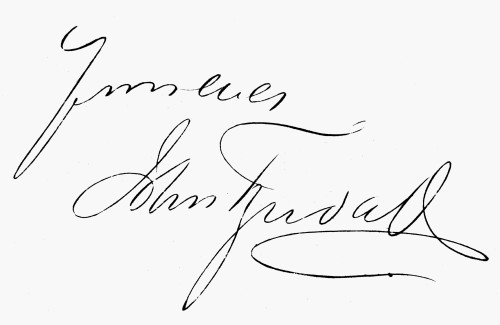 Yours ever
John Tyndall